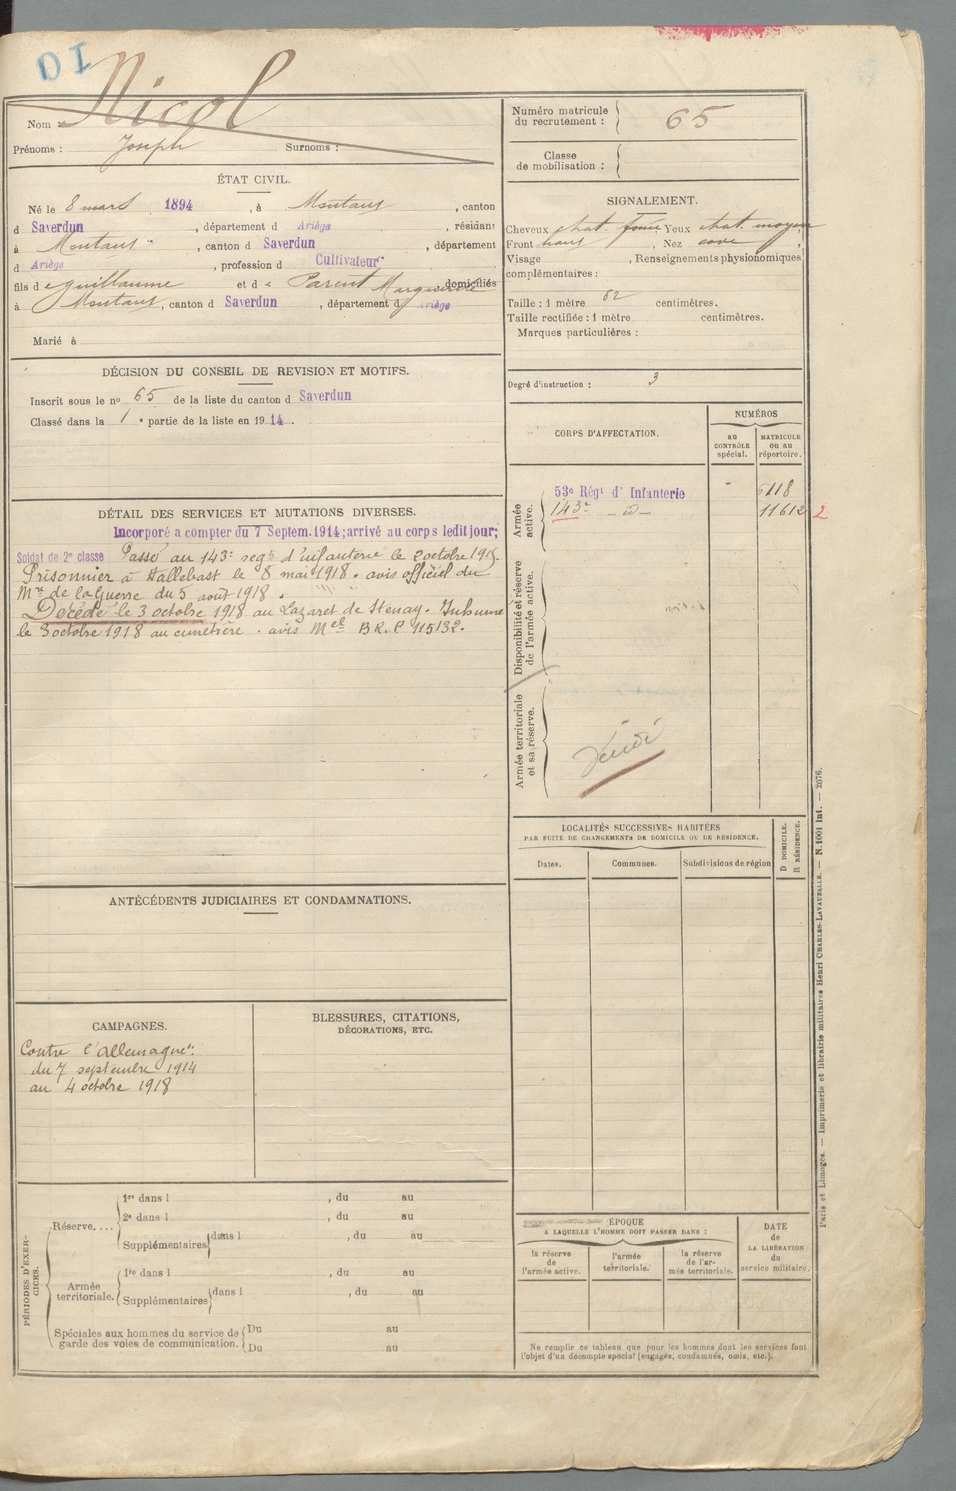 DI
Nom : Nicol
Prénoms : Joseph Surnoms :
ÉTAT CIVIL.
Né le 8 mars 1894, à Montaut, canton
d Saverdun, département d Ariège, résidant
à Montaut, canton d Saverdun, département
d Ariège, profession d Cultivateur
fils de Guillaume et de Parent Marguerite domiciliés
à Montaut, canton d Saverdun, département d Ariège
Marié à
DÉCISION DU CONSEIL DE REVISION ET MOTIFS.
Inscrit sous le no 65 de la liste du canton d Saverdun
Classé dans la 1e partie de la liste en 1914.
DÉTAIL DES SERVICES ET MUTATIONS DIVERSES.
Incorporé à compter du 7 Septem. 1914; arrivé au corps ledit jour;
Soldat de 2e classe Passé au 143e regt d'infanterie le 2 octobre 1915.
Prisonnier à Hallebast le 8 mai 1918. avis officiel du
Mre de la Guerre du 5 août 1918.
Décédé le 3 octobre 1918 au Lazaret de Stenay. Inhumé
le 3 octobre 1918 au cimetière. avis Mel B.R.P 115132.
ANTÉCÉDENTS JUDICIAIRES ET CONDAMNATIONS.
CAMPAGNES.
Contre l'Allemagne:
du 7 septembre 1914
au 4 octobre 1918
BLESSURES, CITATIONS,
DÉCORATIONS, ETC.
PÉRIODES D'EXER-
CICES.
Réserve....
1re dans l , du au
2e dans l , du au
Supplémentaires dans l , du au
Armée
territoriale.
1re dans l , du au
Supplémentaires dans l , du au
Spéciales aux hommes du service de
garde des voies de communication.
Du au
Du au
Numéro matricule
du recrutement : 65
Classe
de mobilisation :
SIGNALEMENT.
Cheveux chat. foncé Yeux chat. moyen
Front haut, Nez cave,
Visage , Renseignements physionomiques
complémentaires :
Taille : 1 mètre 62 centimètres.
Taille rectifiée : 1 mètre centimètres.
Marques particulières :
Degré d'instruction : 3
CORPS D'AFFECTATION.
NUMÉROS
au
CONTRÔLE
spécial.
MATRICULE
ou au
répertoire.
Armée
active.
53e Régt d'Infanterie 6118
143e -d- 11612 2
Disponibilité et réserve
de l'armée active.
Armée territoriale
et sa réserve.
LOCALITÉS SUCCESSIVES HABITÉES
PAR SUITE DE CHANGEMENTS DE DOMICILE OU DE RÉSIDENCE.
Dates. Communes. Subdivisions de région
D DOMICILE.
R RÉSIDENCE.
ÉPOQUE
À LAQUELLE L'HOMME DOIT PASSER DANS :
la réserve
de
l'armée active.
l'armée
territoriale.
la réserve
de l'ar-
mée territoriale.
DATE
de
LA LIBÉRATION
du
service militaire.
Ne remplir ce tableau que pour les hommes dont les services font
l'objet d'un décompte spécial (engagés, condamnés, omis, etc.).
Paris et Limoges. — Imprimerie et librairie militaires Henri CHARLES-LAVAUZELLE. — N. 1001 int. — 2076.